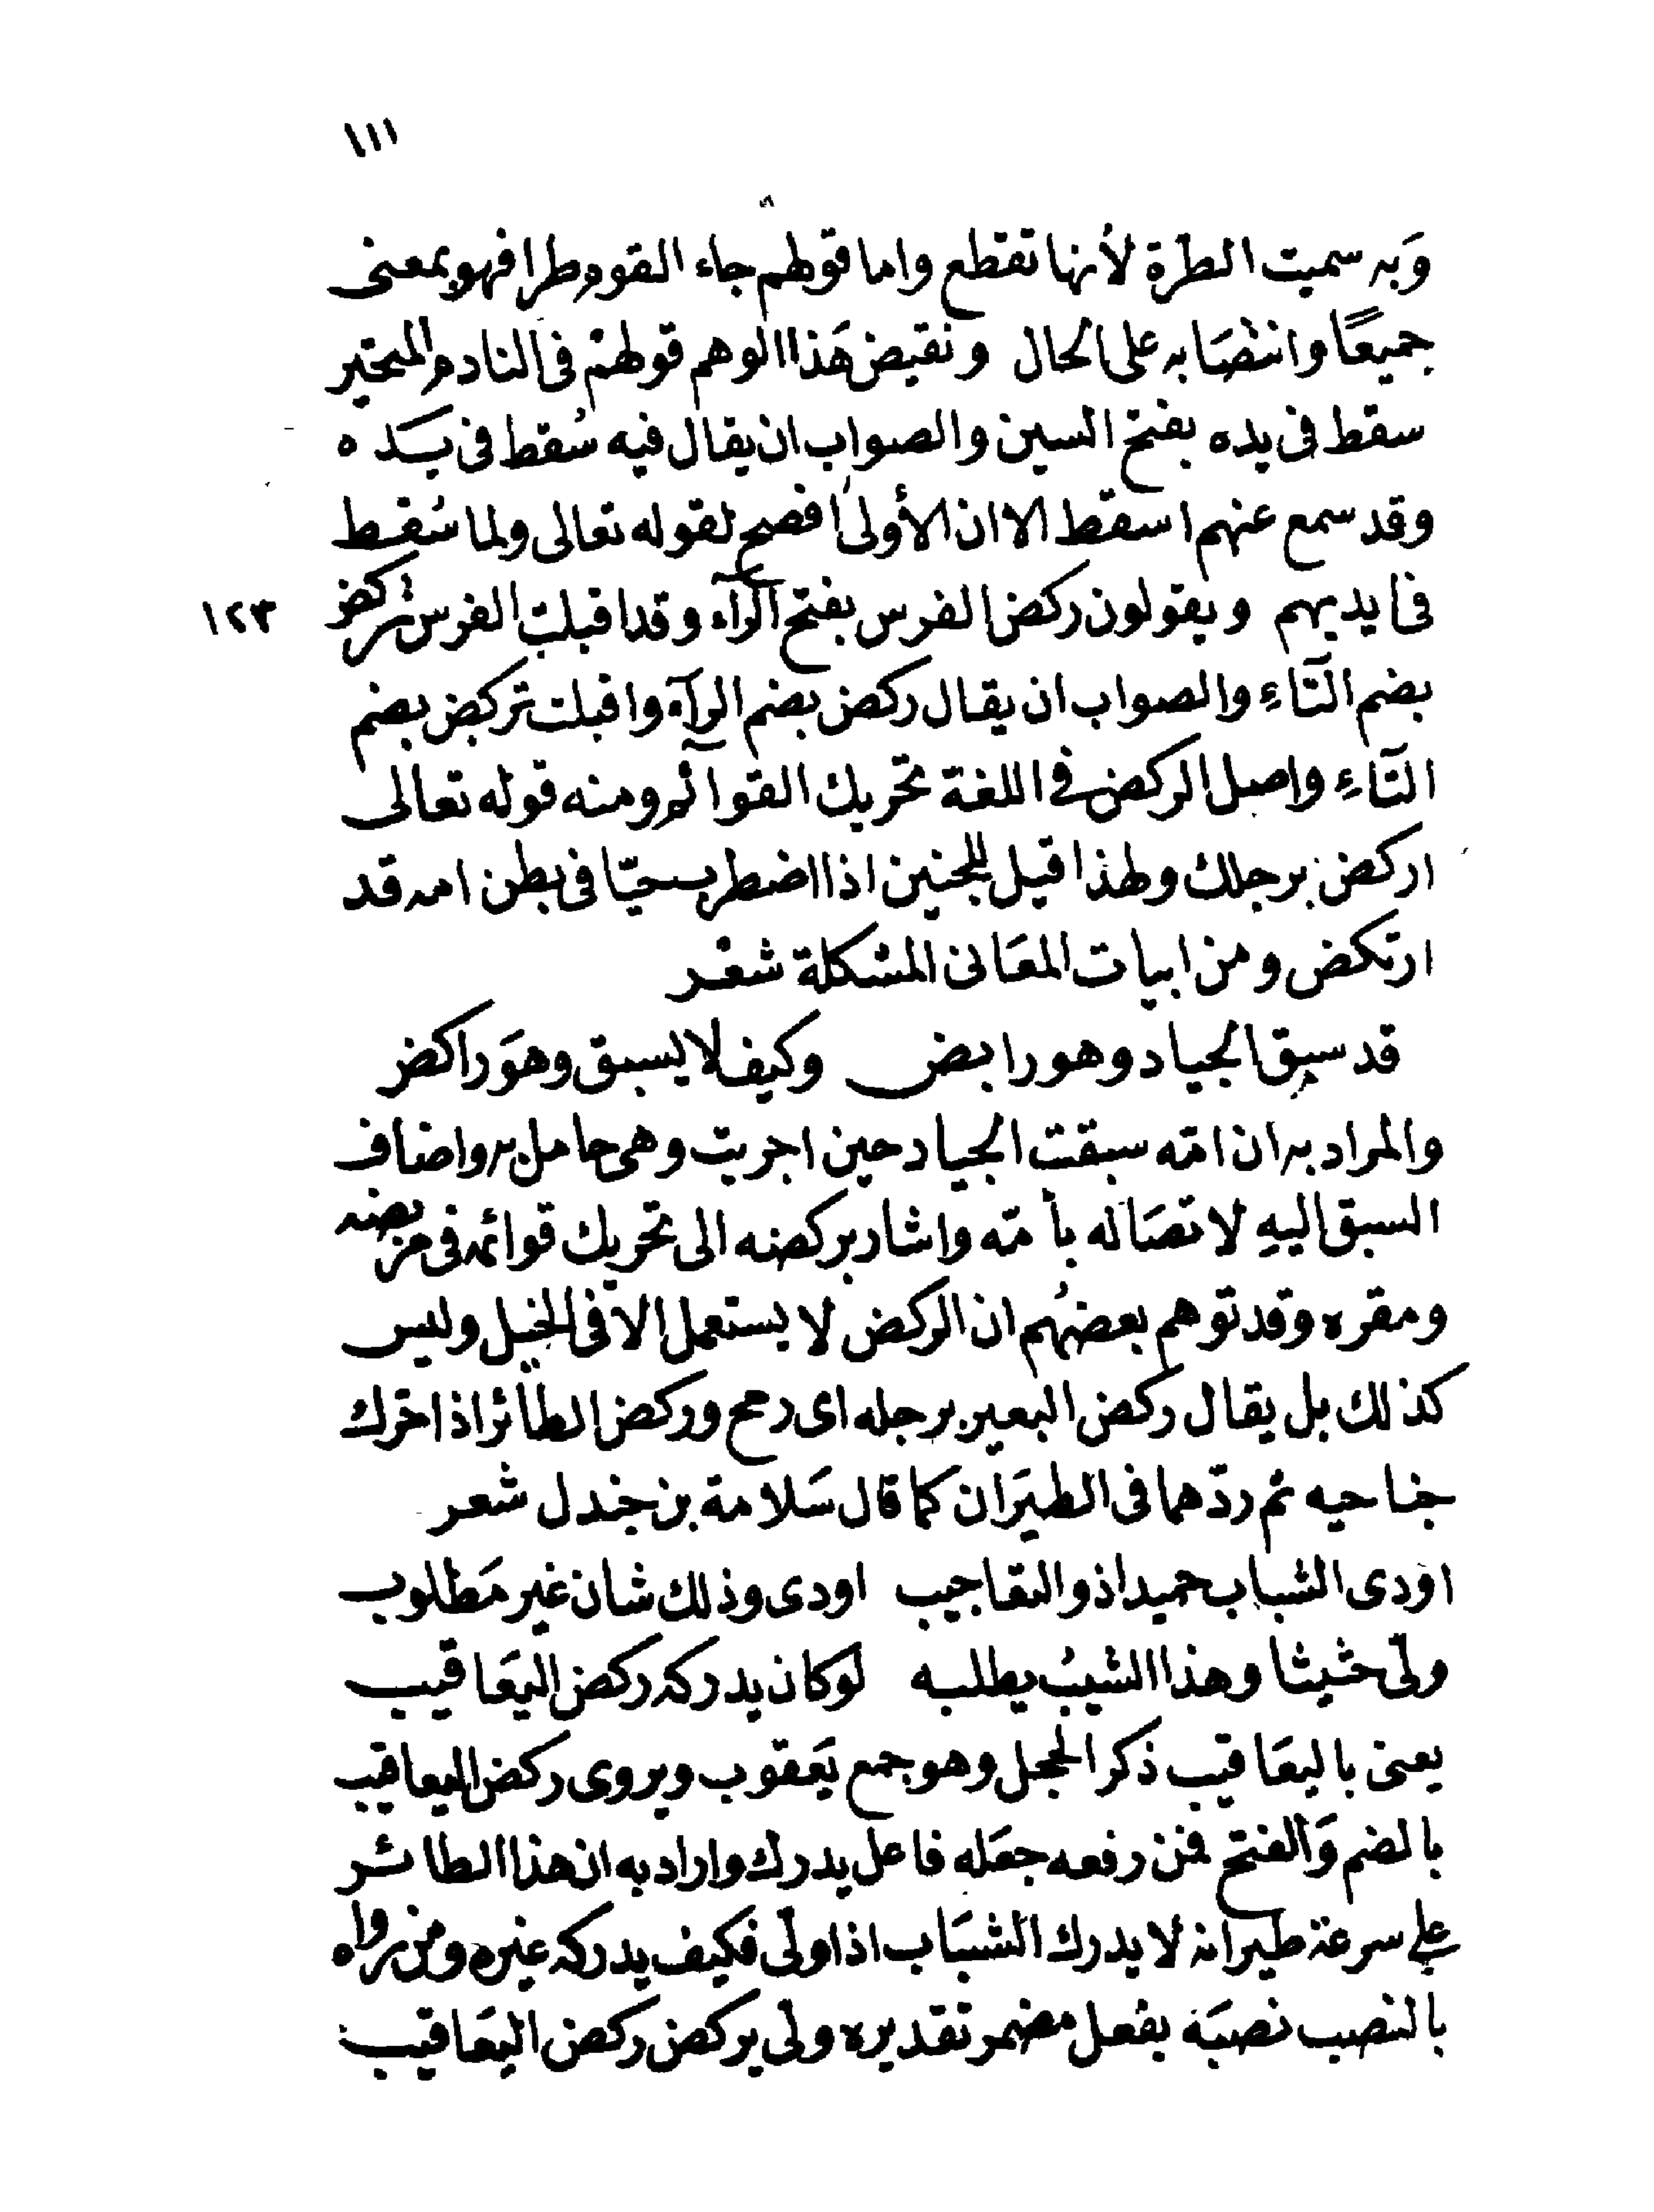 ١١١
وَبه سميت الطرّة لأنها تقطع واما قولهم جاء القوم طرا فهو بمعنى
جميعًا وانتصَابه على الحال ونقيض هَذا الوهم قولهمْ فى النادم والمتحير
سقط فى يده بفتح السين والصواب ان يقال فيه سُقط فى يَده
وقد سمع عنهم اسقط الا ان الأولى افصح لقوله تعالى ولما سُقط
فى ايديهم ويقولون ركض الفرس بفتح الرآء وقد اقبلت الفرس تركض ١٢٣
بضم التَاءِ والصواب ان يقال ركض بضم الرآء واقبلت تركض بضم
التَاءِ واصل الركض فى اللغة تحريك القوآئم ومنه قوله تعالى
اركض برجلك ولهذا قيل للجنين اذا اضطرب حيّا فى بطن امه قد
ارتكض ومن ابيات المعَانى المشكلة شعْر
قد سبق الجياد وهو رابض وكيف لا يسبق وهوَ راكض
والمراد به ان امّه سبقت الجياد حين اجريت وهى حامل به واضاف
السبق اليهِ لاتصَاله بأمّه واشار بركضه الى تحريك قوائمه فى مربضه
ومقره وقد توهم بعضُهم ان الركض لا يستعمل الا فى الخيل وليس
كذلك بل يقال ركض البعير برجله اى رمح وركض الطائر اذا حرك
جناحيه ثم ردّهما فى الطيَران كما قال سَلامة بن جندل شعر
اودى الشباب حميدا ذو التعاجيب اودى وذلك شان غير مَطلوب
ولّى حثيثا وهذا الشيبُ يطلبه لو كان يدركه ركض اليَعاقيب
يعنى باليعَاقيب ذكر الحجل وهو جمع يَعقوب ويروى ركض اليعاقيب
بالضم وَالفتح فمن رفعه جعَله فاعل يدرك واراد به ان هذا الطائر
على سرعة طيرانه لا يدرك الشبَاب اذا ولّى فكيف يدركه غيره ومن رواه
بالنصب نصبَه بفعل مضمر تقديره ولى يركض ركض اليعَاقيب